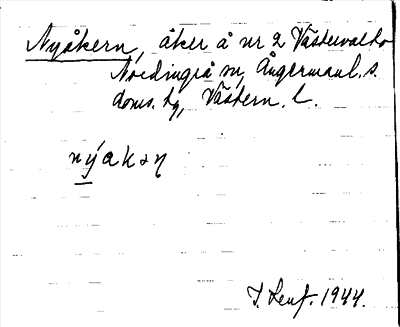 Nyåkern, åker å nr 2 Västervalto
Nordingrå sn, Ångermanl. s.
doms. tg, Västern. l.
nýakəɳ
I. Leuf. 1944.